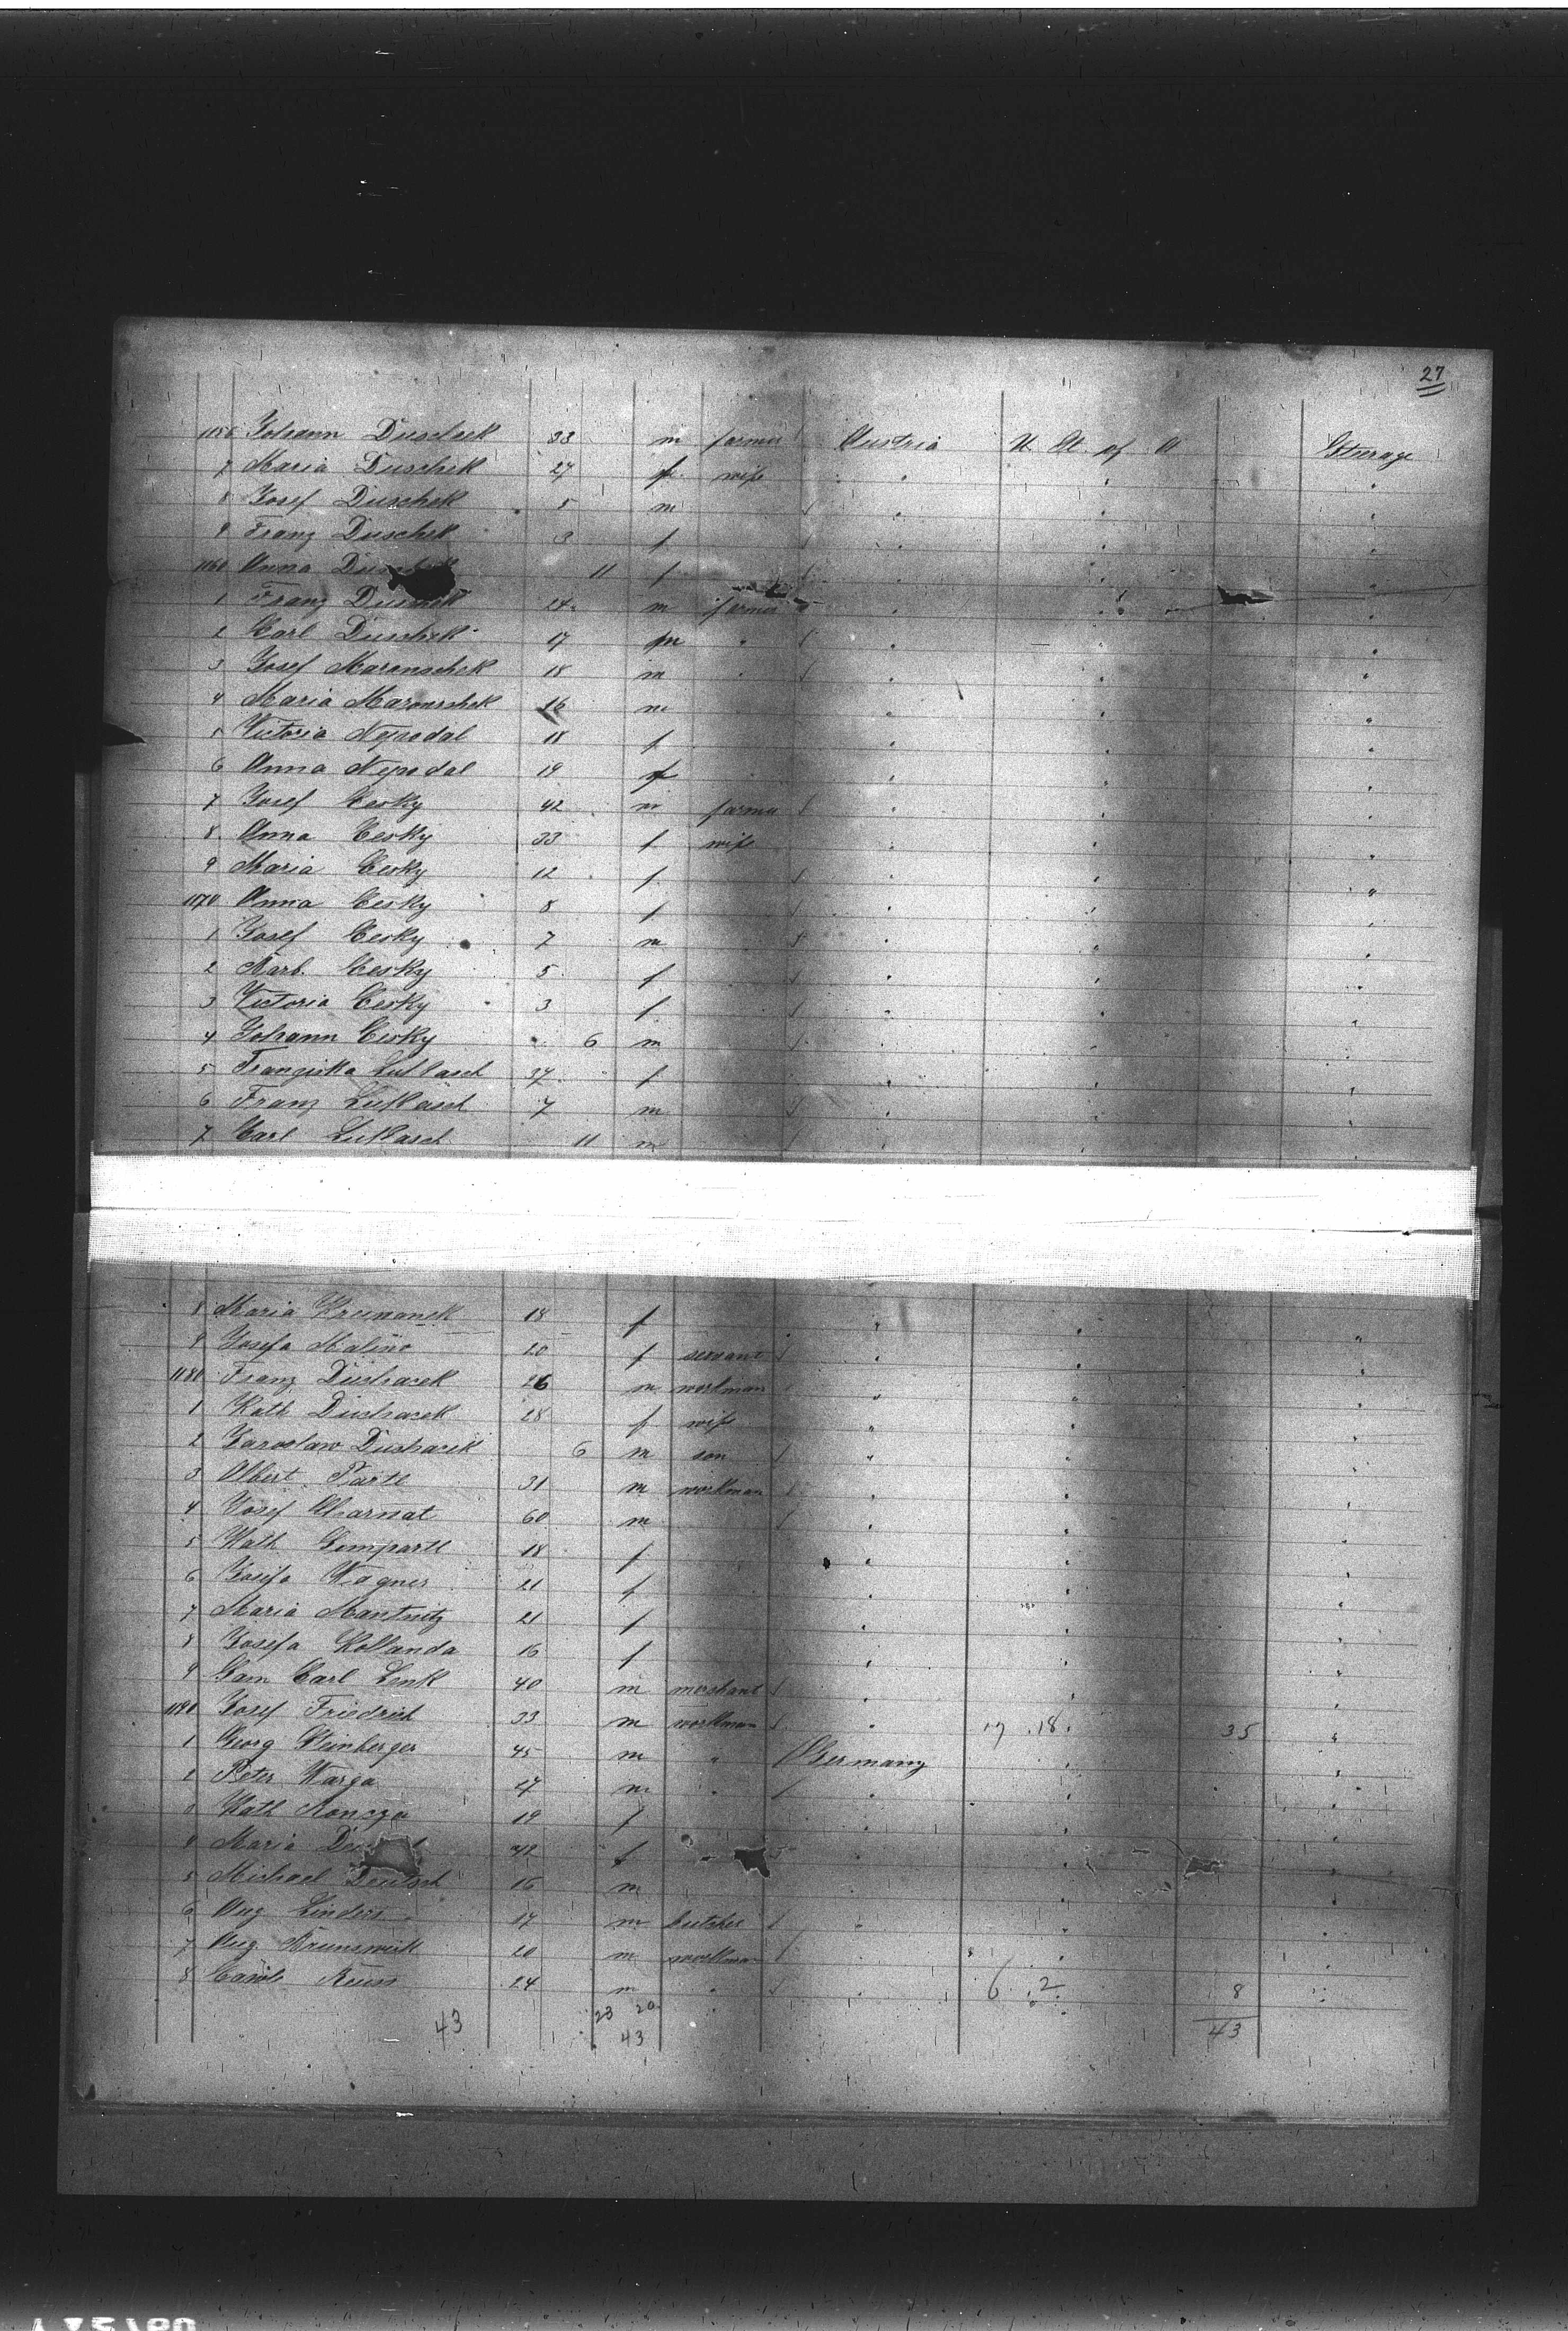 27
1156 Johann Duschek 33 m farmer Austria U. St. of A Steerage
7 Maria Duschek 27 f wife " " "
8 Josef Duschek 5 m " " "
9 Franz Duschek 3 f " " "
1160 Anna 11 f " " "
1 Franz Duschek 14 m farmer " " "
2 Carl Duschek 17 m " " " "
3 Josef Maronschek 18 m " " " "
4 Maria Maronschek 16 m " " "
5 Victoria Nepodal 18 f " " "
6 Anna Nepodal 19 f " " "
7 Josef Cesky 42 m farmer " " "
8 Anna Cesky 33 f wife " " "
9 Maria Cesky 12 f " " "
1170 Anna Cesky 8 f " " "
1 Josef Cesky 7 m " " "
2 Barb. Cesky 5 f " " "
3 Victoria Cesky 3 f " " "
4 Johann Cesky 6 m " " "
5 Franziska Lukasch 37 f " " "
6 Franz Lukasch 7 m " " "
7 Carl Lukasch 11 m
8 Maria 18 f " " "
9 Josefa 20 f servant " " "
1180 Franz Duchacek 26 m workman " " "
1 Kath Duchacek 28 f wife " " "
2 Jaroslaw Duchacek 6 m son " " "
3 Albert 31 m workman " " "
4 Josef 60 m " " "
5 Kath 18 f " " "
6 Josefa Wagner 21 f " " "
7 Maria 21 f " " "
8 Josefa Hollanda 16 f " " "
9 Sam Carl Lenk 40 m merchant " " "
1190 Josef Friedrich 33 m workman " 17 18 35 "
1 Georg Steinberger 45 m " Germany " "
2 Peter Warga 27 m " " " "
3 Kath 19 f " "
4 Maria 42 f " "
5 Michael Deutsch 16 m " "
6 Aug Linders 17 m butcher " " "
7 Aug Brunswick 20 m workman " "
8 24 m " 6 2 8 "
43 23 20 43
43